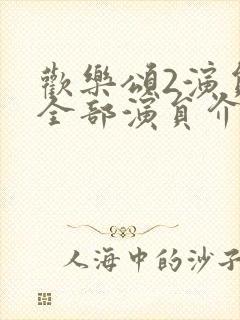 歡樂頌2演員
全部演員介
人海中的沙子